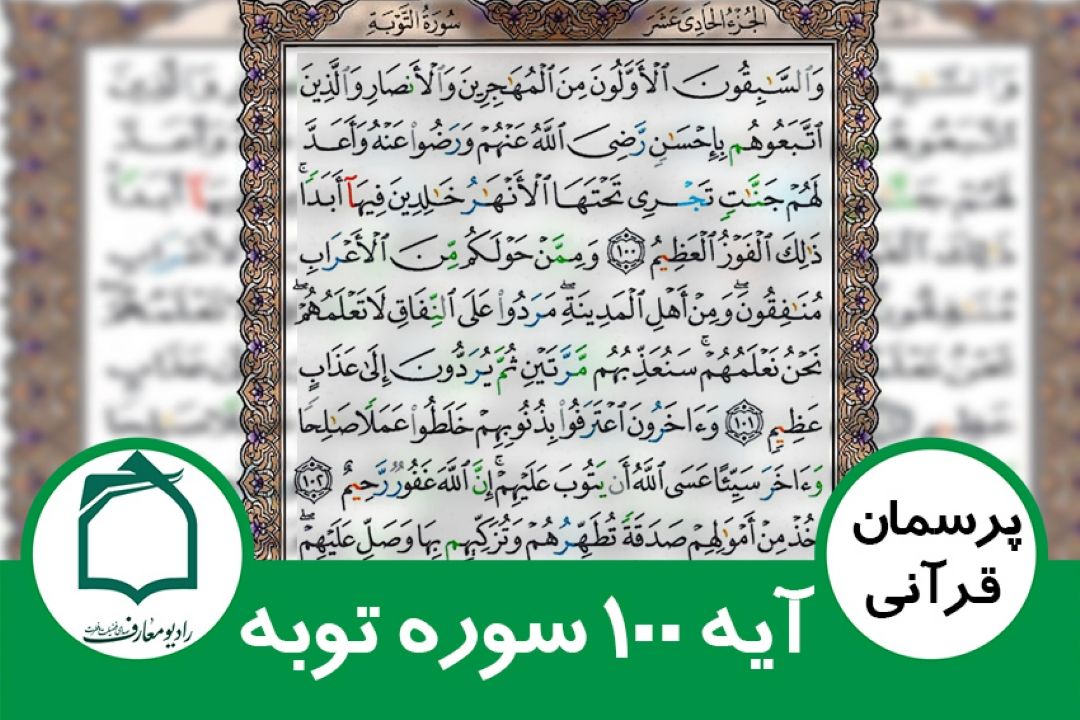 الجُزْءُ الحَادِى عَشَرَ
سُورَةُ التَّوْبَةِ
وَٱلسَّٰبِقُونَ ٱلْأَوَّلُونَ مِنَ ٱلْمُهَٰجِرِينَ وَٱلْأَنصَارِ وَٱلَّذِينَ
ٱتَّبَعُوهُم بِإِحْسَٰنٍ رَّضِىَ ٱللَّهُ عَنْهُمْ وَرَضُوا۟ عَنْهُ وَأَعَدَّ
لَهُمْ جَنَّٰتٍ تَجْرِى تَحْتَهَا ٱلْأَنْهَٰرُ خَٰلِدِينَ فِيهَآ أَبَدًا ۚ
ذَٰلِكَ ٱلْفَوْزُ ٱلْعَظِيمُ ١٠٠ وَمِمَّنْ حَوْلَكُم مِّنَ ٱلْأَعْرَابِ
مُنَٰفِقُونَ ۖ وَمِنْ أَهْلِ ٱلْمَدِينَةِ ۖ مَرَدُوا۟ عَلَى ٱلنِّفَاقِ لَا تَعْلَمُهُمْ ۖ
نَحْنُ نَعْلَمُهُمْ ۚ سَنُعَذِّبُهُم مَّرَّتَيْنِ ثُمَّ يُرَدُّونَ إِلَىٰ عَذَابٍ
عَظِيمٍ ١٠١ وَءَاخَرُونَ ٱعْتَرَفُوا۟ بِذُنُوبِهِمْ خَلَطُوا۟ عَمَلًا صَٰلِحًا
وَءَاخَرَ سَيِّئًا عَسَى ٱللَّهُ أَن يَتُوبَ عَلَيْهِمْ ۚ إِنَّ ٱللَّهَ غَفُورٌ رَّحِيمٌ ١٠٢
خُذْ مِنْ أَمْوَٰلِهِمْ صَدَقَةً تُطَهِّرُهُمْ وَتُزَكِّيهِم بِهَا وَصَلِّ عَلَيْهِمْ ۖ
پرسمان
قرآنی
رادیو معارف
آیه ۱۰۰ سوره توبه